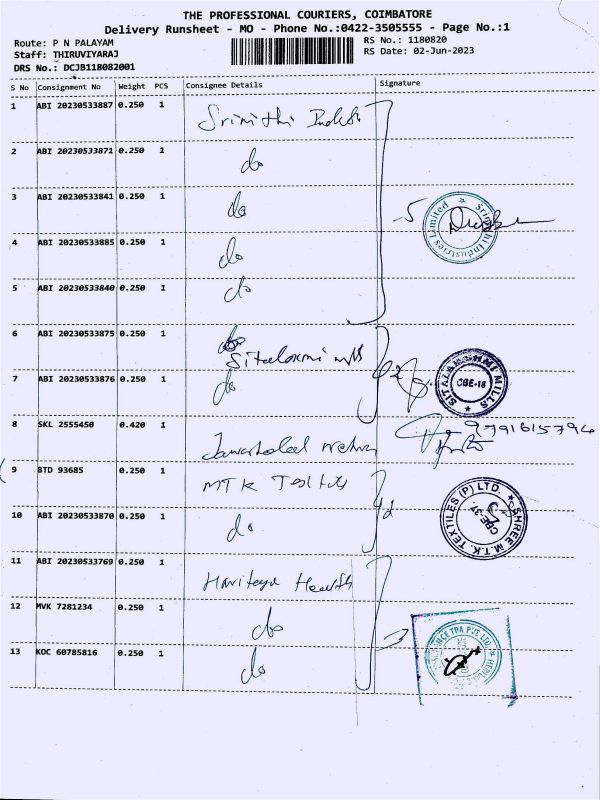 THE PROFESSIONAL COURIERS, COIMBATORE
Delivery Runsheet - MO - Phone No.:0422-3505555 - Page No.:1
Route: P N PALAYAM
RS No.: 1180820
Staff: THIRUVIYARAJ
RS Date: 02-Jun-2023
DRS No.: DCJB118082001
S No Consignment No Weight PCS Consignee Details Signature
1 ABI 20230533887 0.250 1
2 ABI 20230533871 0.250 1 do
3 ABI 20230533841 0.250 1 do
-5
Srinithi Industries Limited
4 ABI 20230533885 0.250 1 do
5 ABI 20230533840 0.250 1 do
6 ABI 20230533875 0.250 1
Sitalaxmi mills
7 ABI 20230533876 0.250 1 do
SITALAKSHMI MILLS
CBE-18
8 SKL 2555450 0.420 1
9791615794
Jawaharlal Nehru
9 BTD 93685 0.250 1 MTK Textiles
SHREE M.T.K. TEXTILES (P) LTD.
CBE-37
10 ABI 20230533870 0.250 1 do
11 ABI 20230533769 0.250 1
Health
12 MVK 7281234 0.250 1 do
TPA PVT LTD
13 KOC 60785816 0.250 1 do